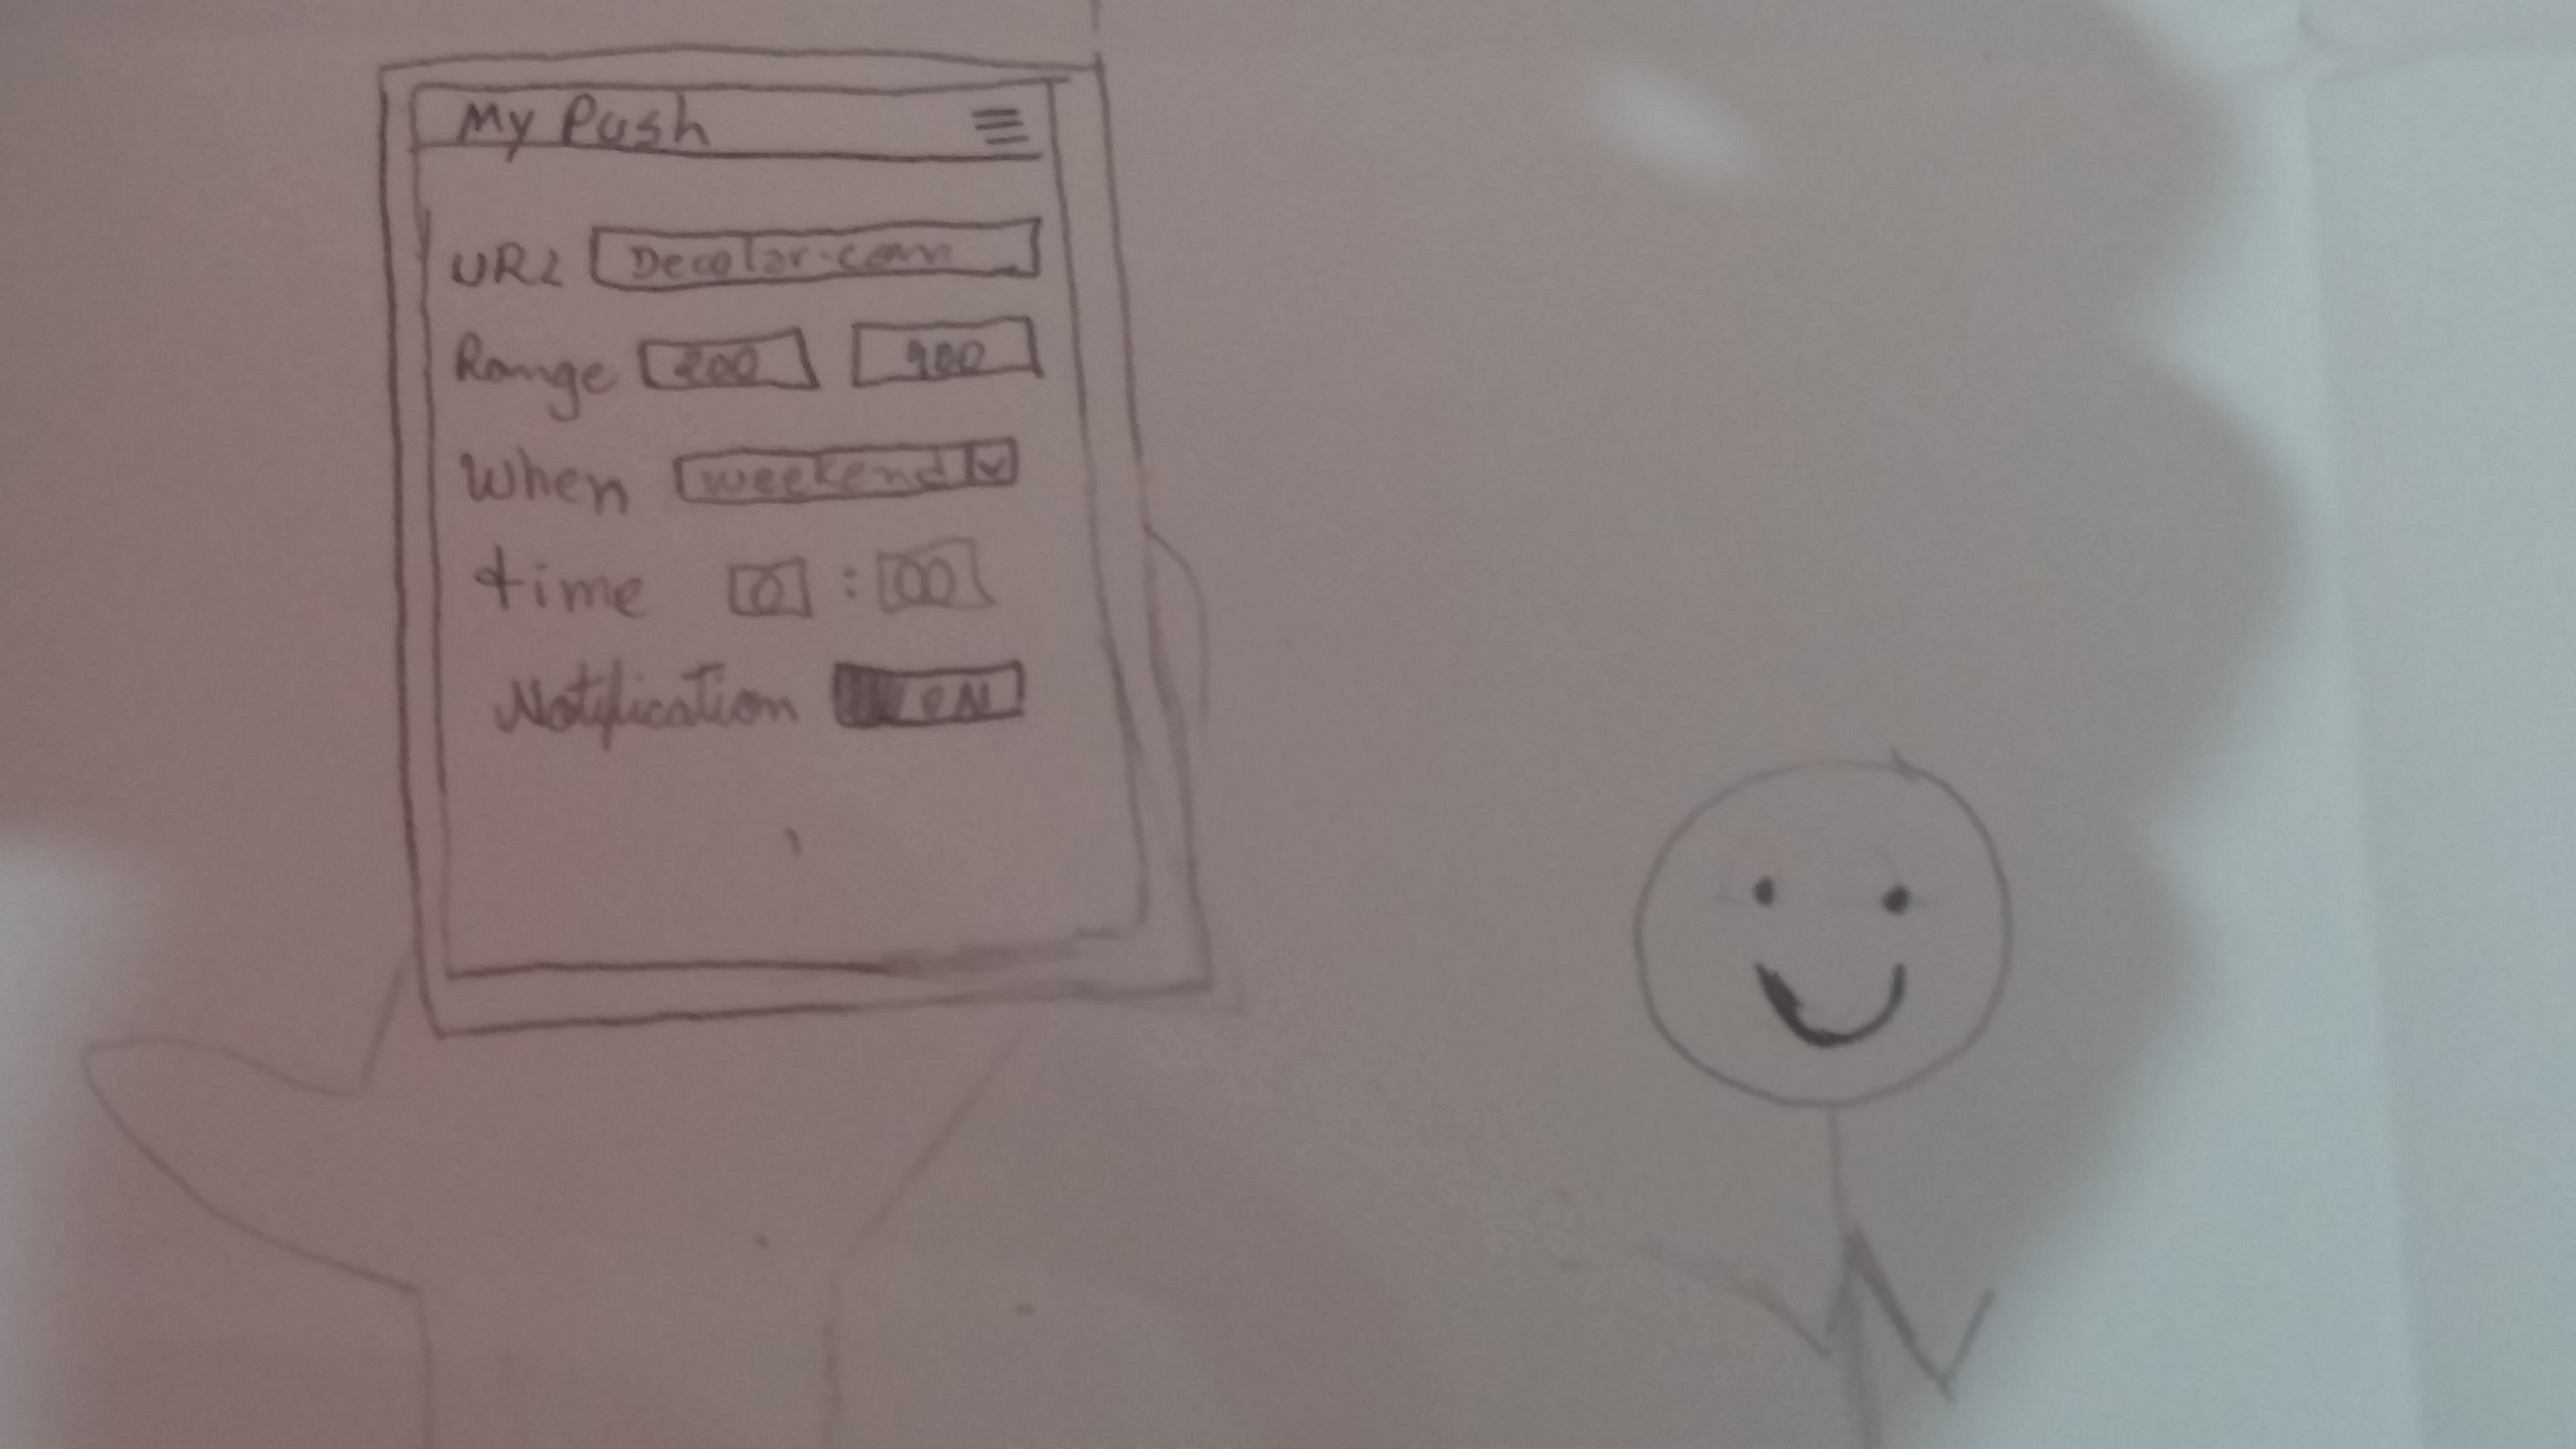 My Push
URL Decolar.com
Range 200 900
When weekend
time 0 : 00
Notification ON